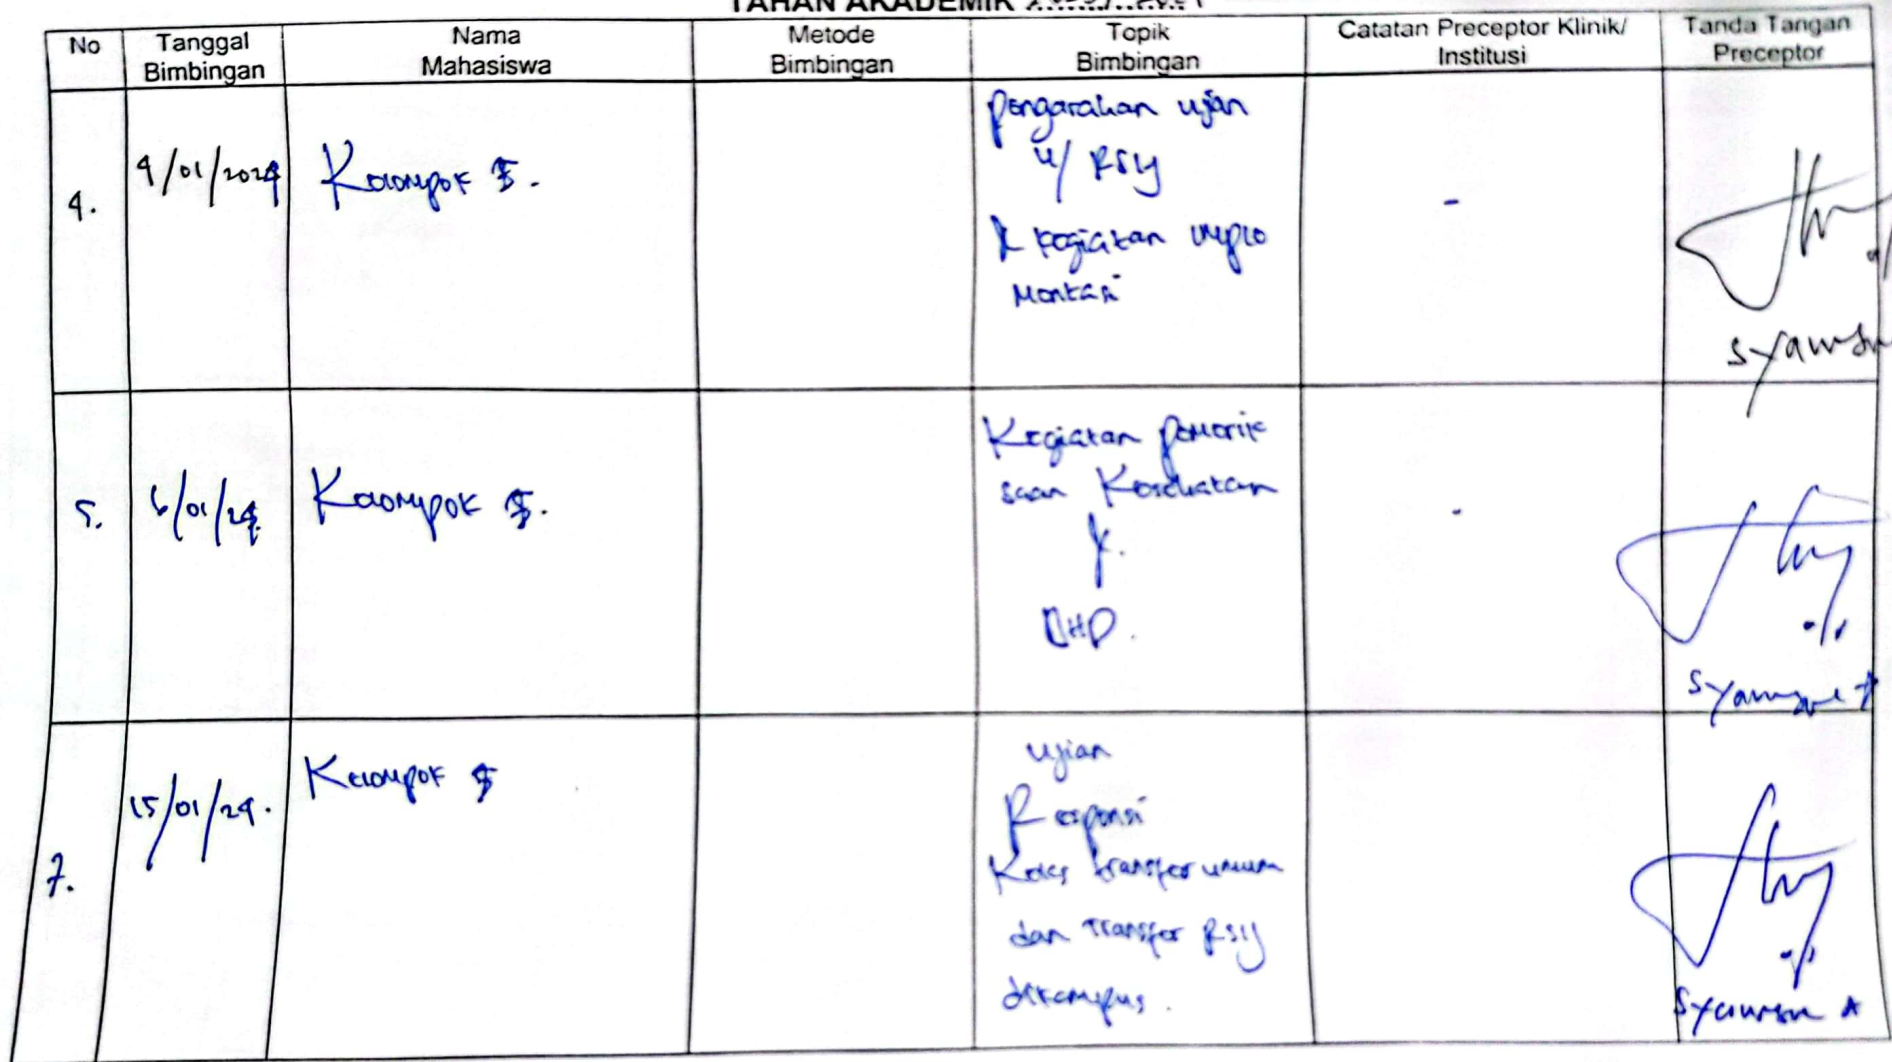 TAHAN AKADEMIK
No
Tanggal
Bimbingan
Nama
Mahasiswa
Metode
Bimbingan
Topik
Bimbingan
Catatan Preceptor Klinik/
Institusi
Tanda Tangan
Preceptor
4.
4/01/2024
Kelompok 5.
Pengarahan ujian
u/ RSIJ
& kegiatan
-
5.
6/01/24.
Kelompok 5.
Kegiatan pemerik
saan Kesehatan
&.
-
7.
15/01/24.
Kelompok 5
Ujian
Responsi
transfer umum
dan Transfer RSIJ
dikampus.